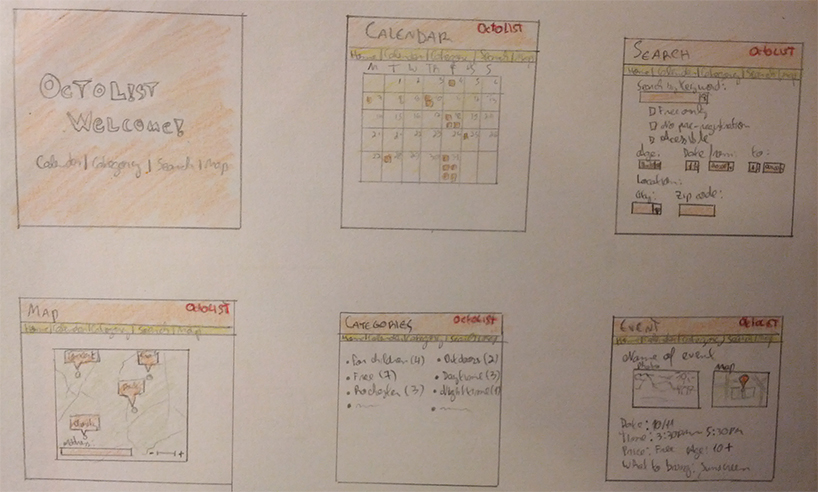 OCTOLIST
WELCOME!
Calendar | Category | Search | Map
CALENDAR OCTOLIST
Home | Calendar | Category | Search | Map
M T W TH F S S
SEARCH OCTOLIST
Home | Calendar | Category | Search | Map
Search by Keyword:
Free only
No pre-registration
Accessible
Age: Date from: to:
Location:
City: Zip code:
MAP OCTOLIST
Home | Calendar | Category | Search | Map
- +
CATEGORIES OCTOLIST
Home | Calendar | Category | Search | Map
• For children (4) • Outdoors (2)
• Free (7) • Daytime (3)
• (3) • Nighttime (1)
EVENT OCTOLIST
Home | Calendar | Category | Search | Map
Name of event
Photo Map
Date: 10/11
Time: 3:30PM - 5:30PM
Price: Free Age: 10+
What to bring: Sunscreen